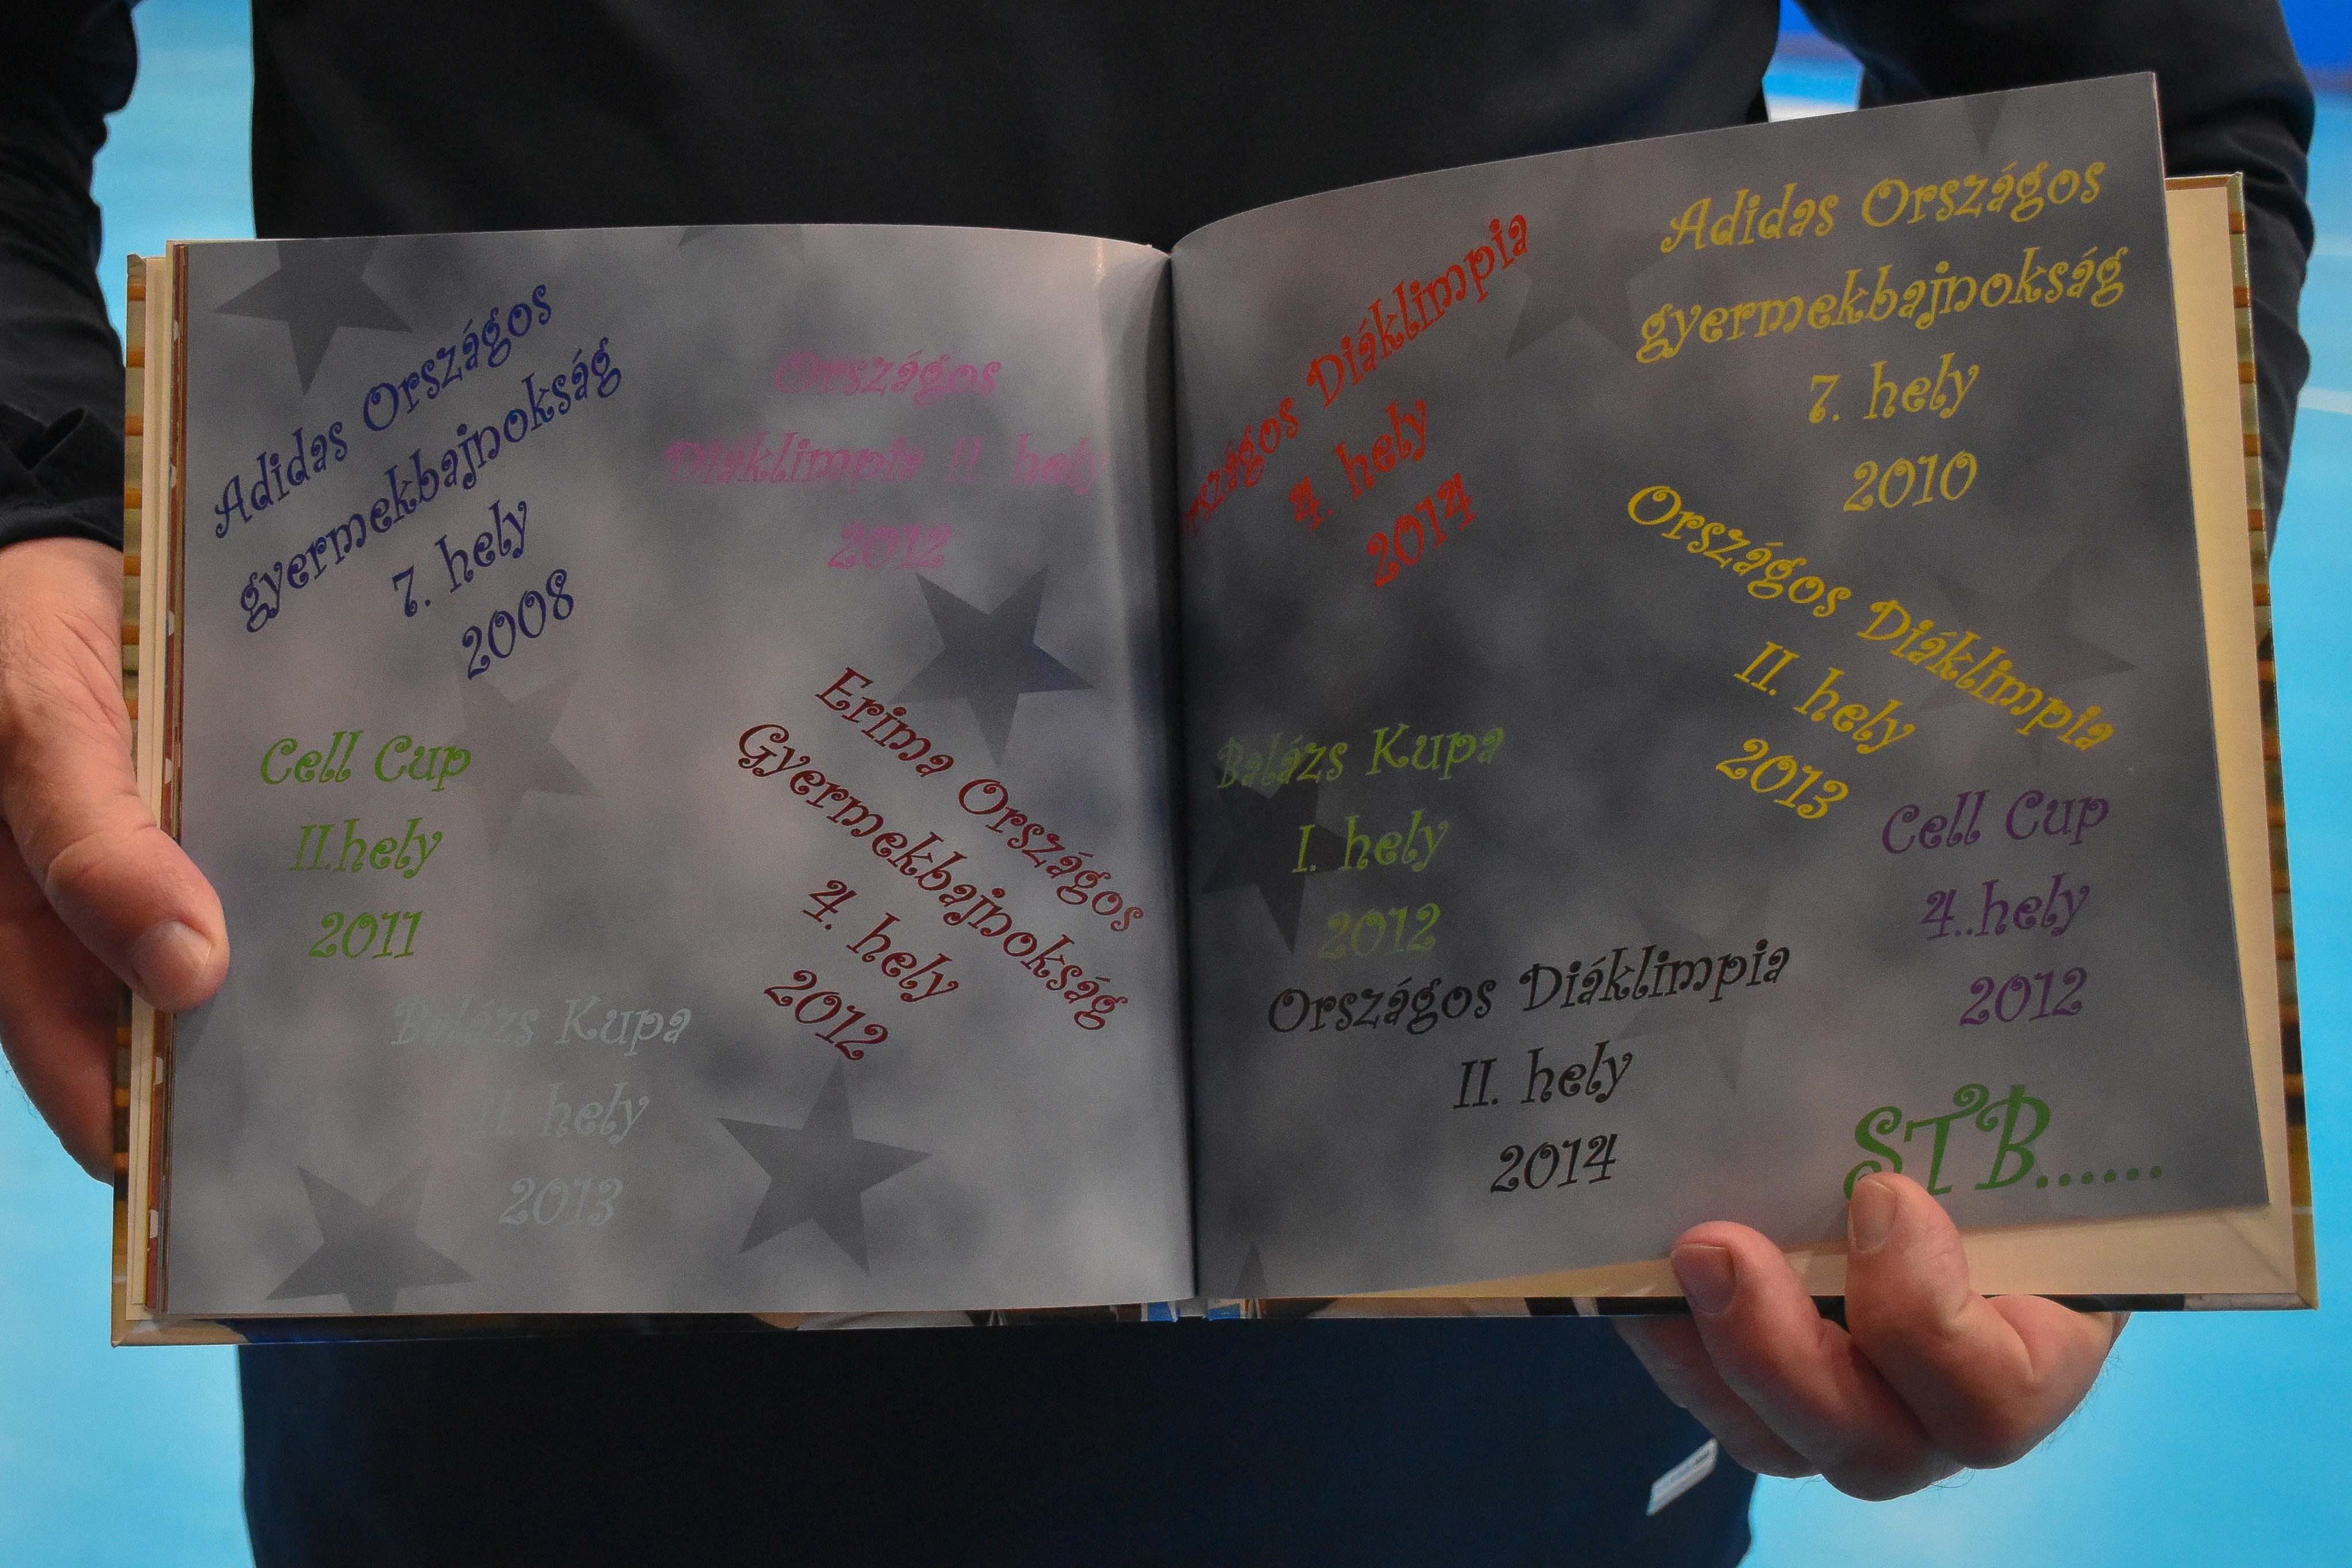 Adidas Országos
gyermekbajnokság
7. hely
2008
Országos
Diáklimpia II. hely
2012
Cell Cup
II.hely
2011
Erima Országos
Gyermekbajnokság
4. hely
2012
Balázs Kupa
II. hely
2013
rszágos Diáklimpia
4. hely
2014
Adidas Országos
gyermekbajnokság
7. hely
2010
Országos Diáklimpia
II. hely
2013
Balázs Kupa
I. hely
2012
Cell Cup
4..hely
2012
Országos Diáklimpia
II. hely
2014
STB......